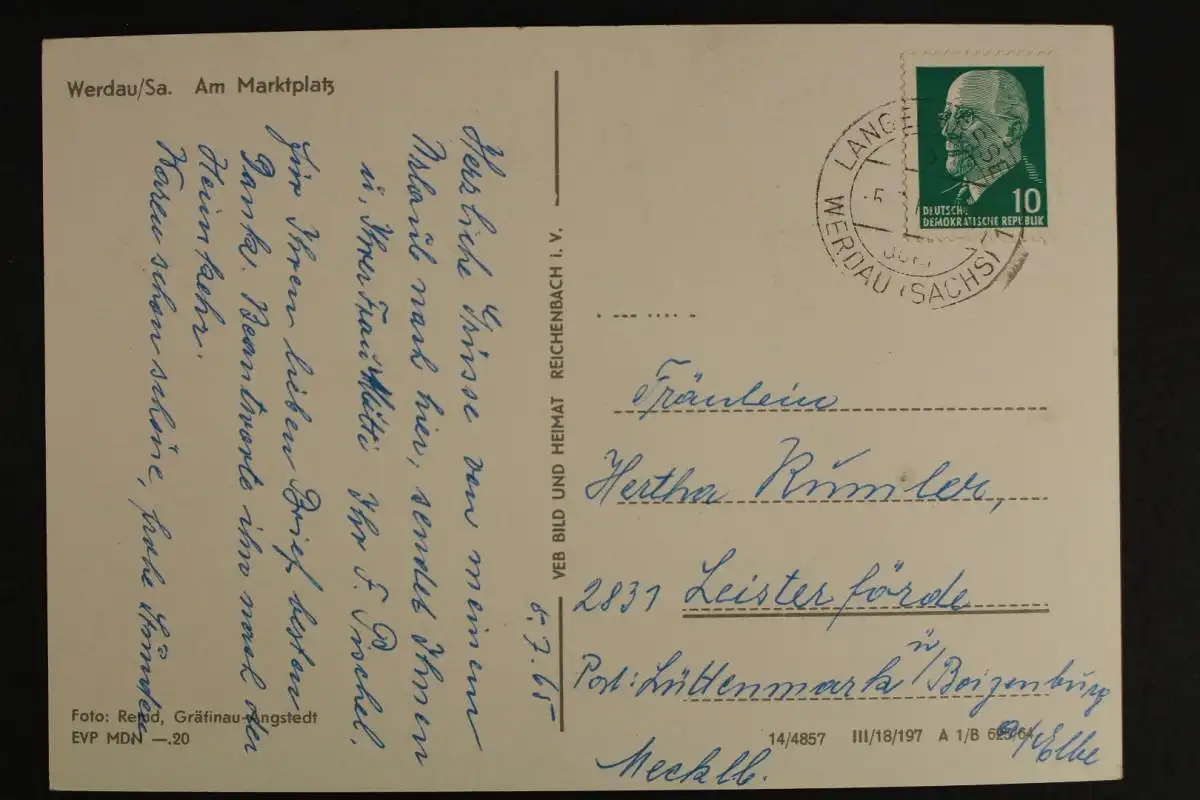 Werdau/Sa. Am Marktplatz
8.7.65
Herzliche Grüsse von meinem
Urlaub nach hier, sendet Ihnen
u, Ihrer Frau Mutti Ihr F. Pischel.
für Ihren lieben Brief besten
Dank. Beantworte ihn nach der
Heimkehr.
Waren schon schöne, frohe Stunden
Foto: Reind, Gräfinau-Angstedt
EVP MDN —.20
VEB BILD UND HEIMAT REICHENBACH i. V.
DEUTSCHE
DEMOKRATISCHE REPUBLIK
10
WERDAU (SACHS) 1
Fräulein
Hertha Kümler,
2831 Leisterförde
Post: Lüttenmark ü/ Boizenburg
a/Elbe
Mecklb.
14/4857 III/18/197 A 1/B 625/64